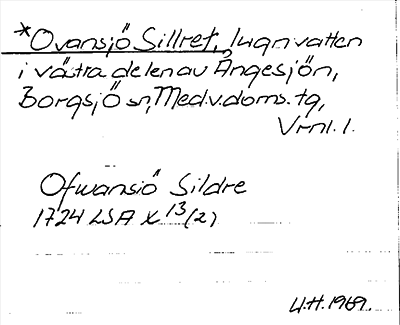 *Ovansjö Sillret, lugnvatten
i västra delen av Ångesjön,
Borgsjö sn, Med.v.doms. tg,
Vrnl. l.
Ofwansiö Sildre
1724 LSA X 13/(2)
U.H. 1969.